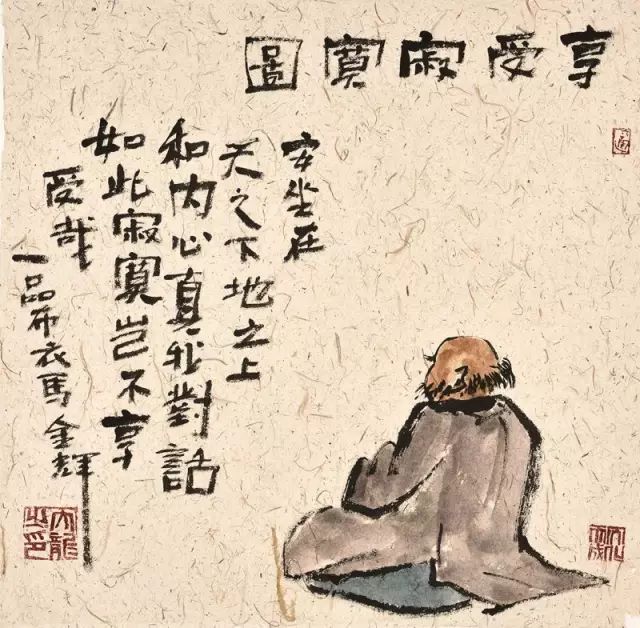 享受寂寞圖
安坐在
天之下地之上
和内心真我對話
如此寂寞岂不享
受哉
一品布衣馬金輝